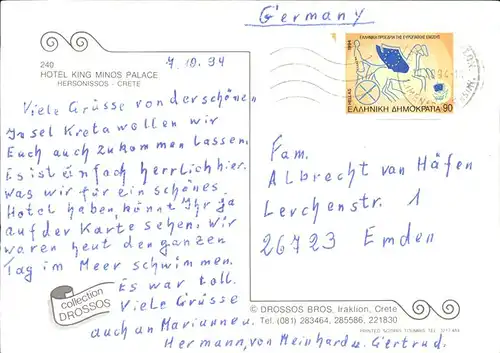 Germany
7.10.94
240
HOTEL KING MINOS PALACE
HERSONISSOS - CRETE
ΕΛΛΗΝΙΚΗ ΠΡΟΕΔΡΙΑ ΤΗΣ ΕΥΡΩΠΑΪΚΗΣ ΕΝΩΣΗΣ
1994
HELLAS
ΕΛΛΗΝΙΚΗ ΔΗΜΟΚΡΑΤΙΑ 90
Viele Grüsse von der schöne
Insel Kreta wollen wir
Euch auch zukommen lassen.
Es ist einfach herrlich hier.
was wir für ein schönes
Hotel haben, könnt Ihr ja
auf der Karte sehen. Wir
waren heut den ganzen
Tag im Meer schwimmen.
Es war toll.
Viele Grüsse
auch an Marianne u.
Hermann, von Meinhard u. Giertrud.
Fam.
Albrecht van Häfen
Lerchenstr. 1
26723 Emden
collection
DROSSOS
© DROSSOS BROS, Iraklion, Crete
Tel. (081) 283464, 285586, 221830